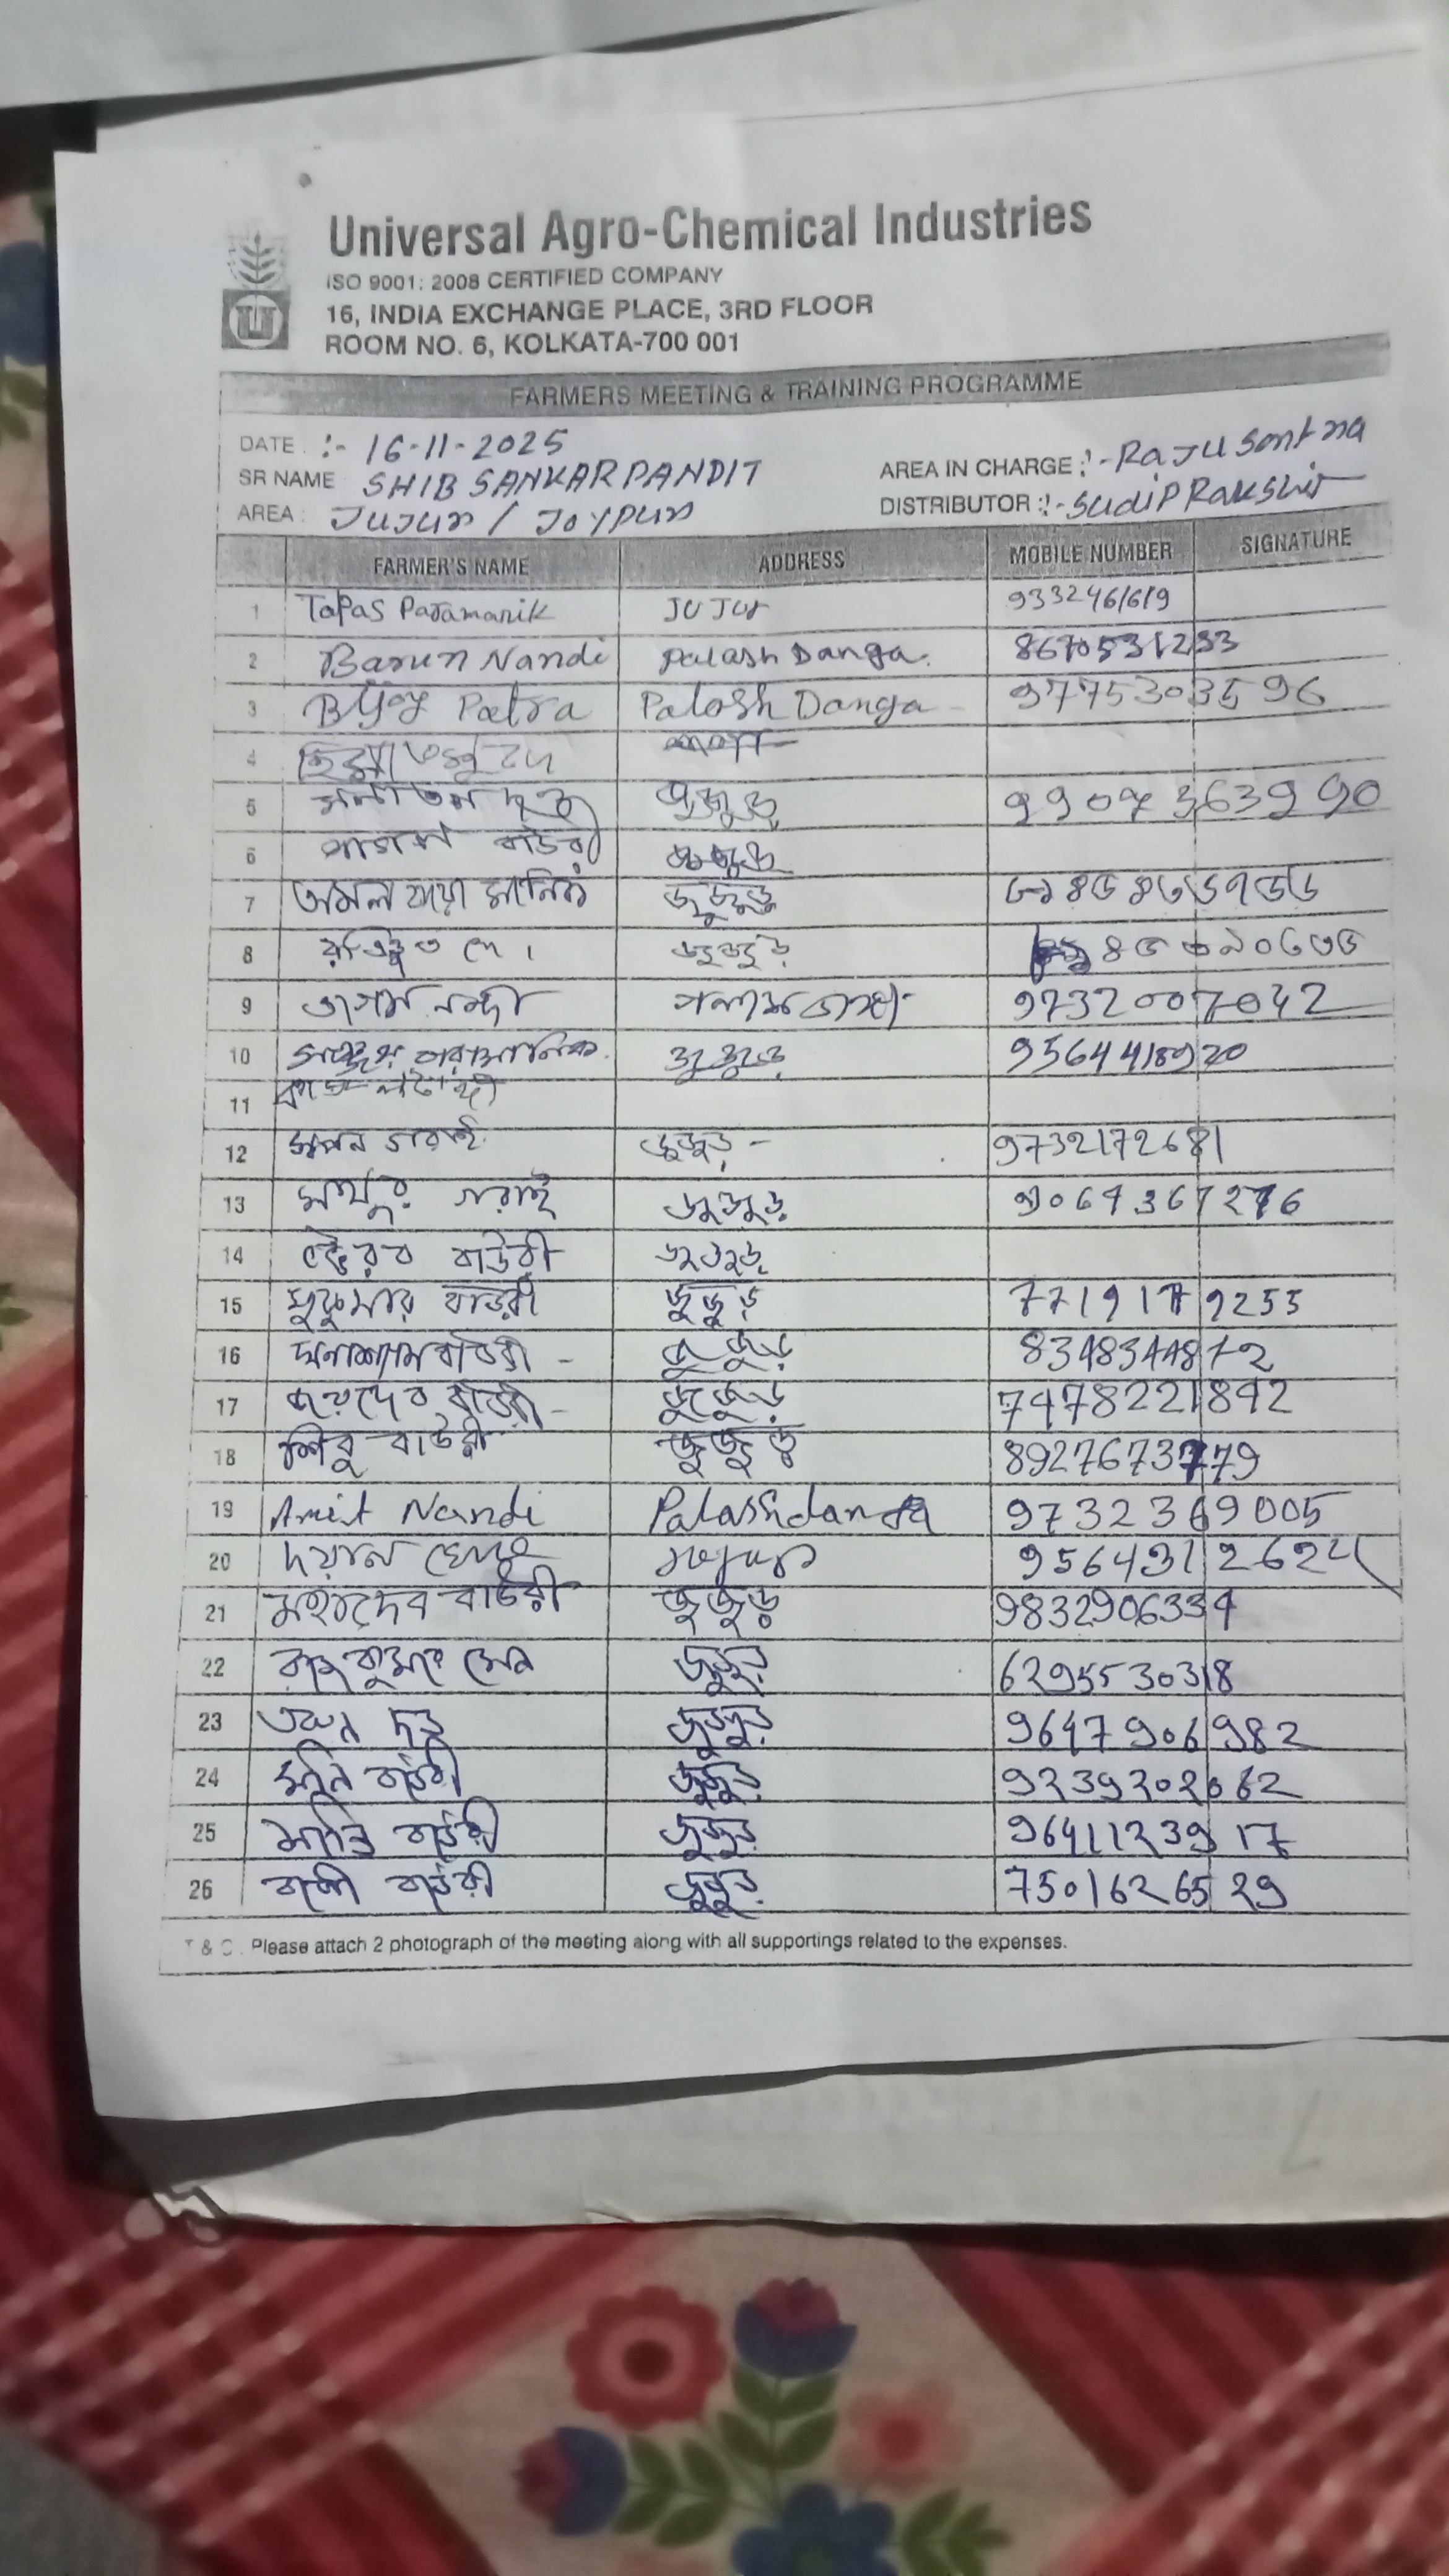 Universal Agro-Chemical Industries
ISO 9001: 2008 CERTIFIED COMPANY
16, INDIA EXCHANGE PLACE, 3RD FLOOR
ROOM NO. 6, KOLKATA-700 001
FARMERS MEETING & TRAINING PROGRAMME
DATE :- 16-11-2025
AREA IN CHARGE :- RAJU Santra
SR NAME SHIB SANKAR PANDIT
DISTRIBUTOR :- Sudip Rakshit
AREA : Jujur / Joypur
FARMER'S NAME ADDRESS MOBILE NUMBER SIGNATURE
1 Tapas Paramanik JUJur 9332461619
2 Barun Nandi Palash Danga. 8670531233
3 Bijoy Patra Palash Danga - 9775303596
4
5 সনাতন দত্ত জুজুড় 9907363990
6 বাউরী জুজুড়
7 অমল জুজুড়
8 দে । জুজুড়
9 তাপস নন্দী পলাশডাঙ্গা- 9732007042
10 পরামানিক. জুজুড় 9564418920
11
12 স্বপন গরাই জুজুড় - 9732172681
13 গরাই জুজুড় 9064367276
14 ভৈরব বাউরী জুজুড়
15 সুকুমার বাউরী জুজুড় 7719179255
16 ঘনশ্যাম বাউরী - জুজুড় 8348344872
17 জয়দেব বাউরী - জুজুড় 7478221842
18 শিবু বাউরী জুজুড় 8927673779
19 Amit Nandi Palashdanga 9732369005
20 দয়াল Jujur 9564312624
21 মহাদেব বাউরী জুজুড় 9832906334
22 সেন জুজুর 6295530318
23 দত্ত জুজুর 9647906982
24 বাউরী জুজুর 9239202062
25 বাউরী জুজুর 9641123917
26 বাউরী জুজুর 7501626529
T & C : Please attach 2 photograph of the meeting along with all supportings related to the expenses.